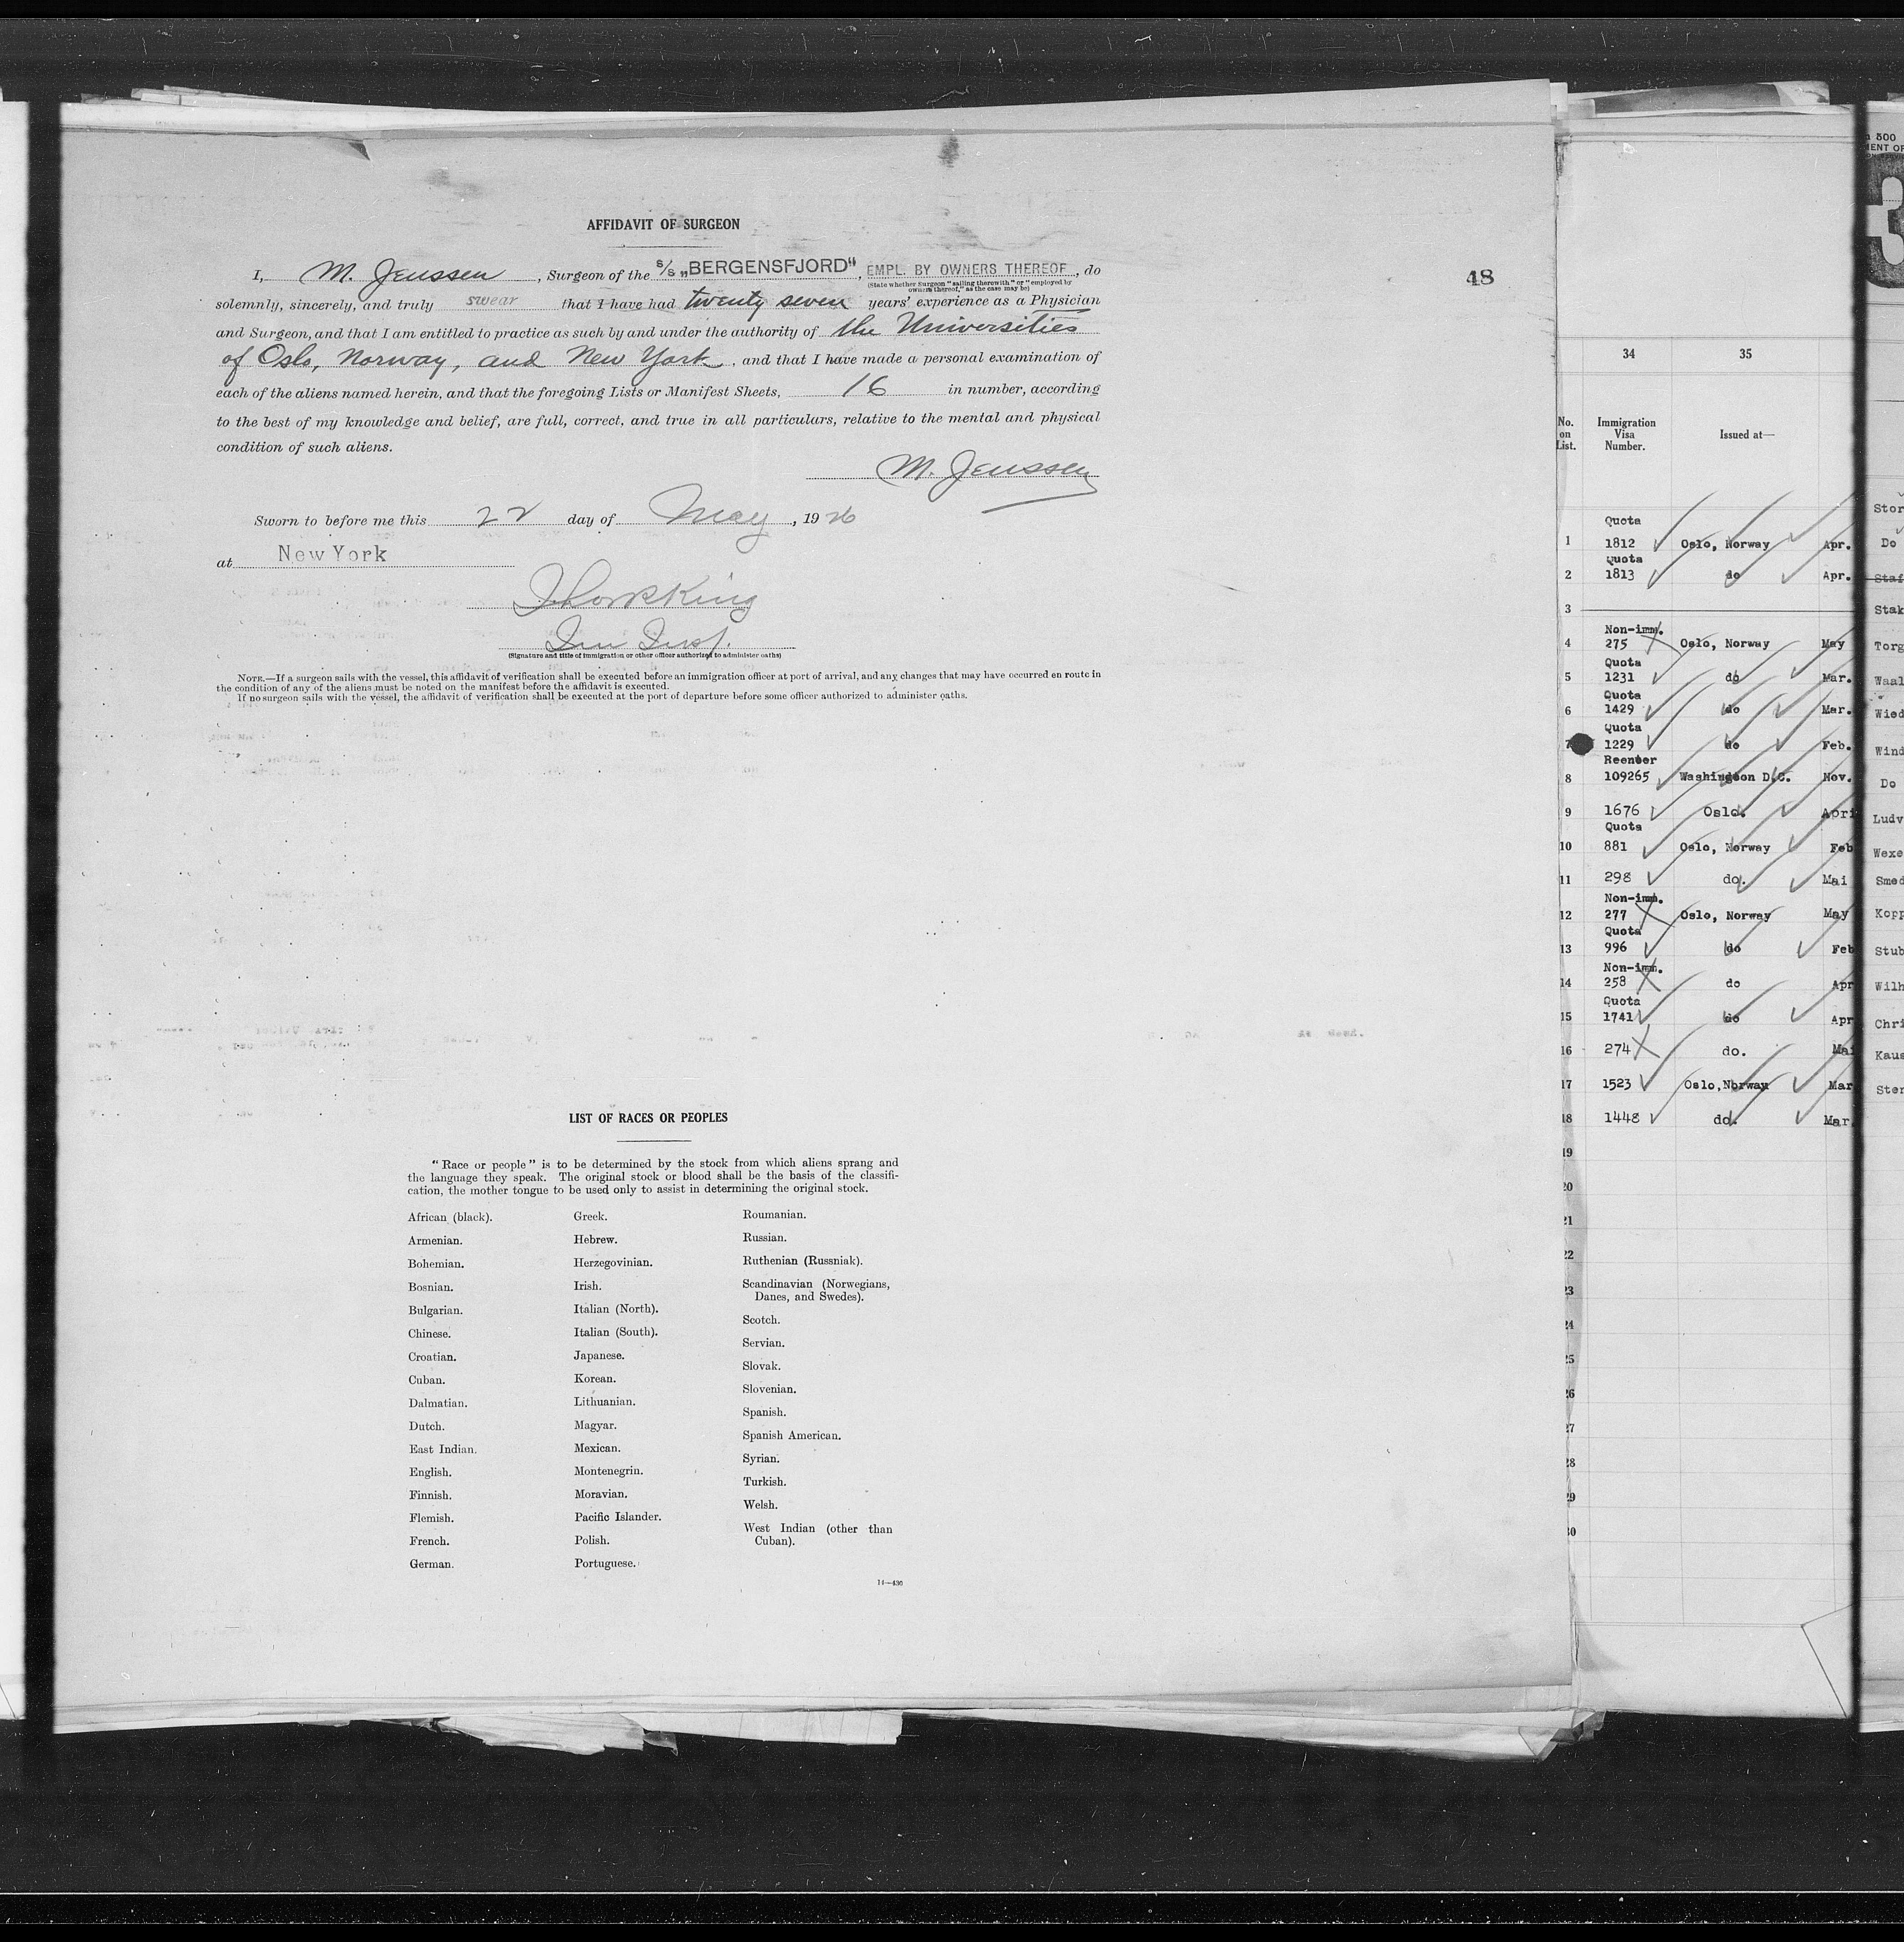 AFFIDAVIT OF SURGEON
48
I, M. Jenssen, Surgeon of the S/S „BERGENSFJORD", EMPL. BY OWNERS THEREOF, do
(State whether Surgeon "sailing therewith" or "employed by
owners thereof," as the case may be)
solemnly, sincerely, and truly swear that I have had twenty seven years' experience as a Physician
and Surgeon, and that I am entitled to practice as such by and under the authority of the Universities
of Oslo, Norway, and New York, and that I have made a personal examination of
each of the aliens named herein, and that the foregoing Lists or Manifest Sheets, 16 in number, according
to the best of my knowledge and belief, are full, correct, and true in all particulars, relative to the mental and physical
condition of such aliens.
M. Jenssen
Sworn to before me this 22 day of May, 1926
at New York
King
Imm Insp.
(Signature and title of immigration or other officer authorized to administer oaths)
NOTE.—If a surgeon sails with the vessel, this affidavit of verification shall be executed before an immigration officer at port of arrival, and any changes that may have occurred en route in
the condition of any of the aliens must be noted on the manifest before the affidavit is executed.
If no surgeon sails with the vessel, the affidavit of verification shall be executed at the port of departure before some officer authorized to administer oaths.
LIST OF RACES OR PEOPLES
"Race or people" is to be determined by the stock from which aliens sprang and
the language they speak. The original stock or blood shall be the basis of the classifi-
cation, the mother tongue to be used only to assist in determining the original stock.
African (black).
Armenian.
Bohemian.
Bosnian.
Bulgarian.
Chinese.
Croatian.
Cuban.
Dalmatian.
Dutch.
East Indian.
English.
Finnish.
Flemish.
French.
German.
Greek.
Hebrew.
Herzegovinian.
Irish.
Italian (North).
Italian (South).
Japanese.
Korean.
Lithuanian.
Magyar.
Mexican.
Montenegrin.
Moravian.
Pacific Islander.
Polish.
Portuguese.
Roumanian.
Russian.
Ruthenian (Russniak).
Scandinavian (Norwegians,
Danes, and Swedes).
Scotch.
Servian.
Slovak.
Slovenian.
Spanish.
Spanish American.
Syrian.
Turkish.
Welsh.
West Indian (other than
Cuban).
14—430
34 35
No.
on
List.
Immigration
Visa
Number.
Issued at—
Quota
1 1812 Oslo, Norway Apr.
Quota
2 1813 do Apr.
3
Non-imm.
4 275 Oslo, Norway May
Quota
5 1231 do Mar.
Quota
6 1429 do Mar.
Quota
7 1229 do Feb.
Reenter
8 109265 Washington D.C. Nov.
9 1676 Oslo. Apri
Quota
10 881 Oslo, Norway Feb
11 298 do. Mai
Non-imm.
12 277 Oslo, Norway May
Quota
13 996 do Feb
Non-imm.
14 258 do Apr
Quota
15 1741 do Apr
16 274 do. Mai
17 1523 Oslo,Norway Mar
18 1448 do. Mar.
19
20
21
22
23
24
25
26
27
28
29
30
500
MENT OF
3
Stor
Do
Staf
Stak
Torg
Waal
Wied
Wind
Do
Ludv
Wexe
Smed
Kopp
Stub
Wilh
Chri
Kaus
Sten